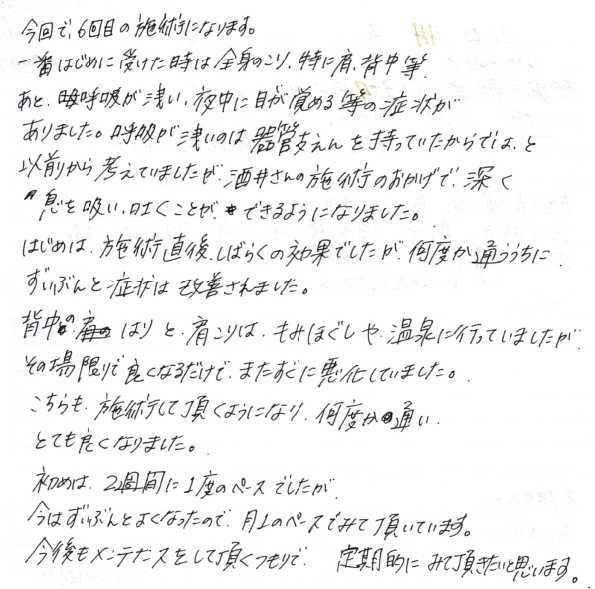 今回で、6回目の施術になります。
一番はじめに受けた時は全身のこり、特に肩、背中等、
あと、呼吸が浅い、夜中に目が覚める等の症状が
ありました。呼吸が浅いのは器管支えんを持っていたからでは、と
以前から考えていましたが、酒井さんの施術のおかげで、深く
息を吸い、吐くことが、できるようになりました。
はじめは、施術直後、しばらくの効果でしたが、何度か通ううちに
ずいぶんと症状は改善されました。
背中のはりと、肩こりは、もみほぐしや、温泉に行っていましたが、
その場限りで良くなるだけで、またすぐに悪化していました。
こちらも、施術して頂くようになり、何度か通い、
とても良くなりました。
初めは、2週間に1度のペースでしたが、
今はずいぶんとよくなったので、月1のペースでみて頂いています。
今後もメンテナスをして頂くつもりで、定期的にみて頂きたいと思います。